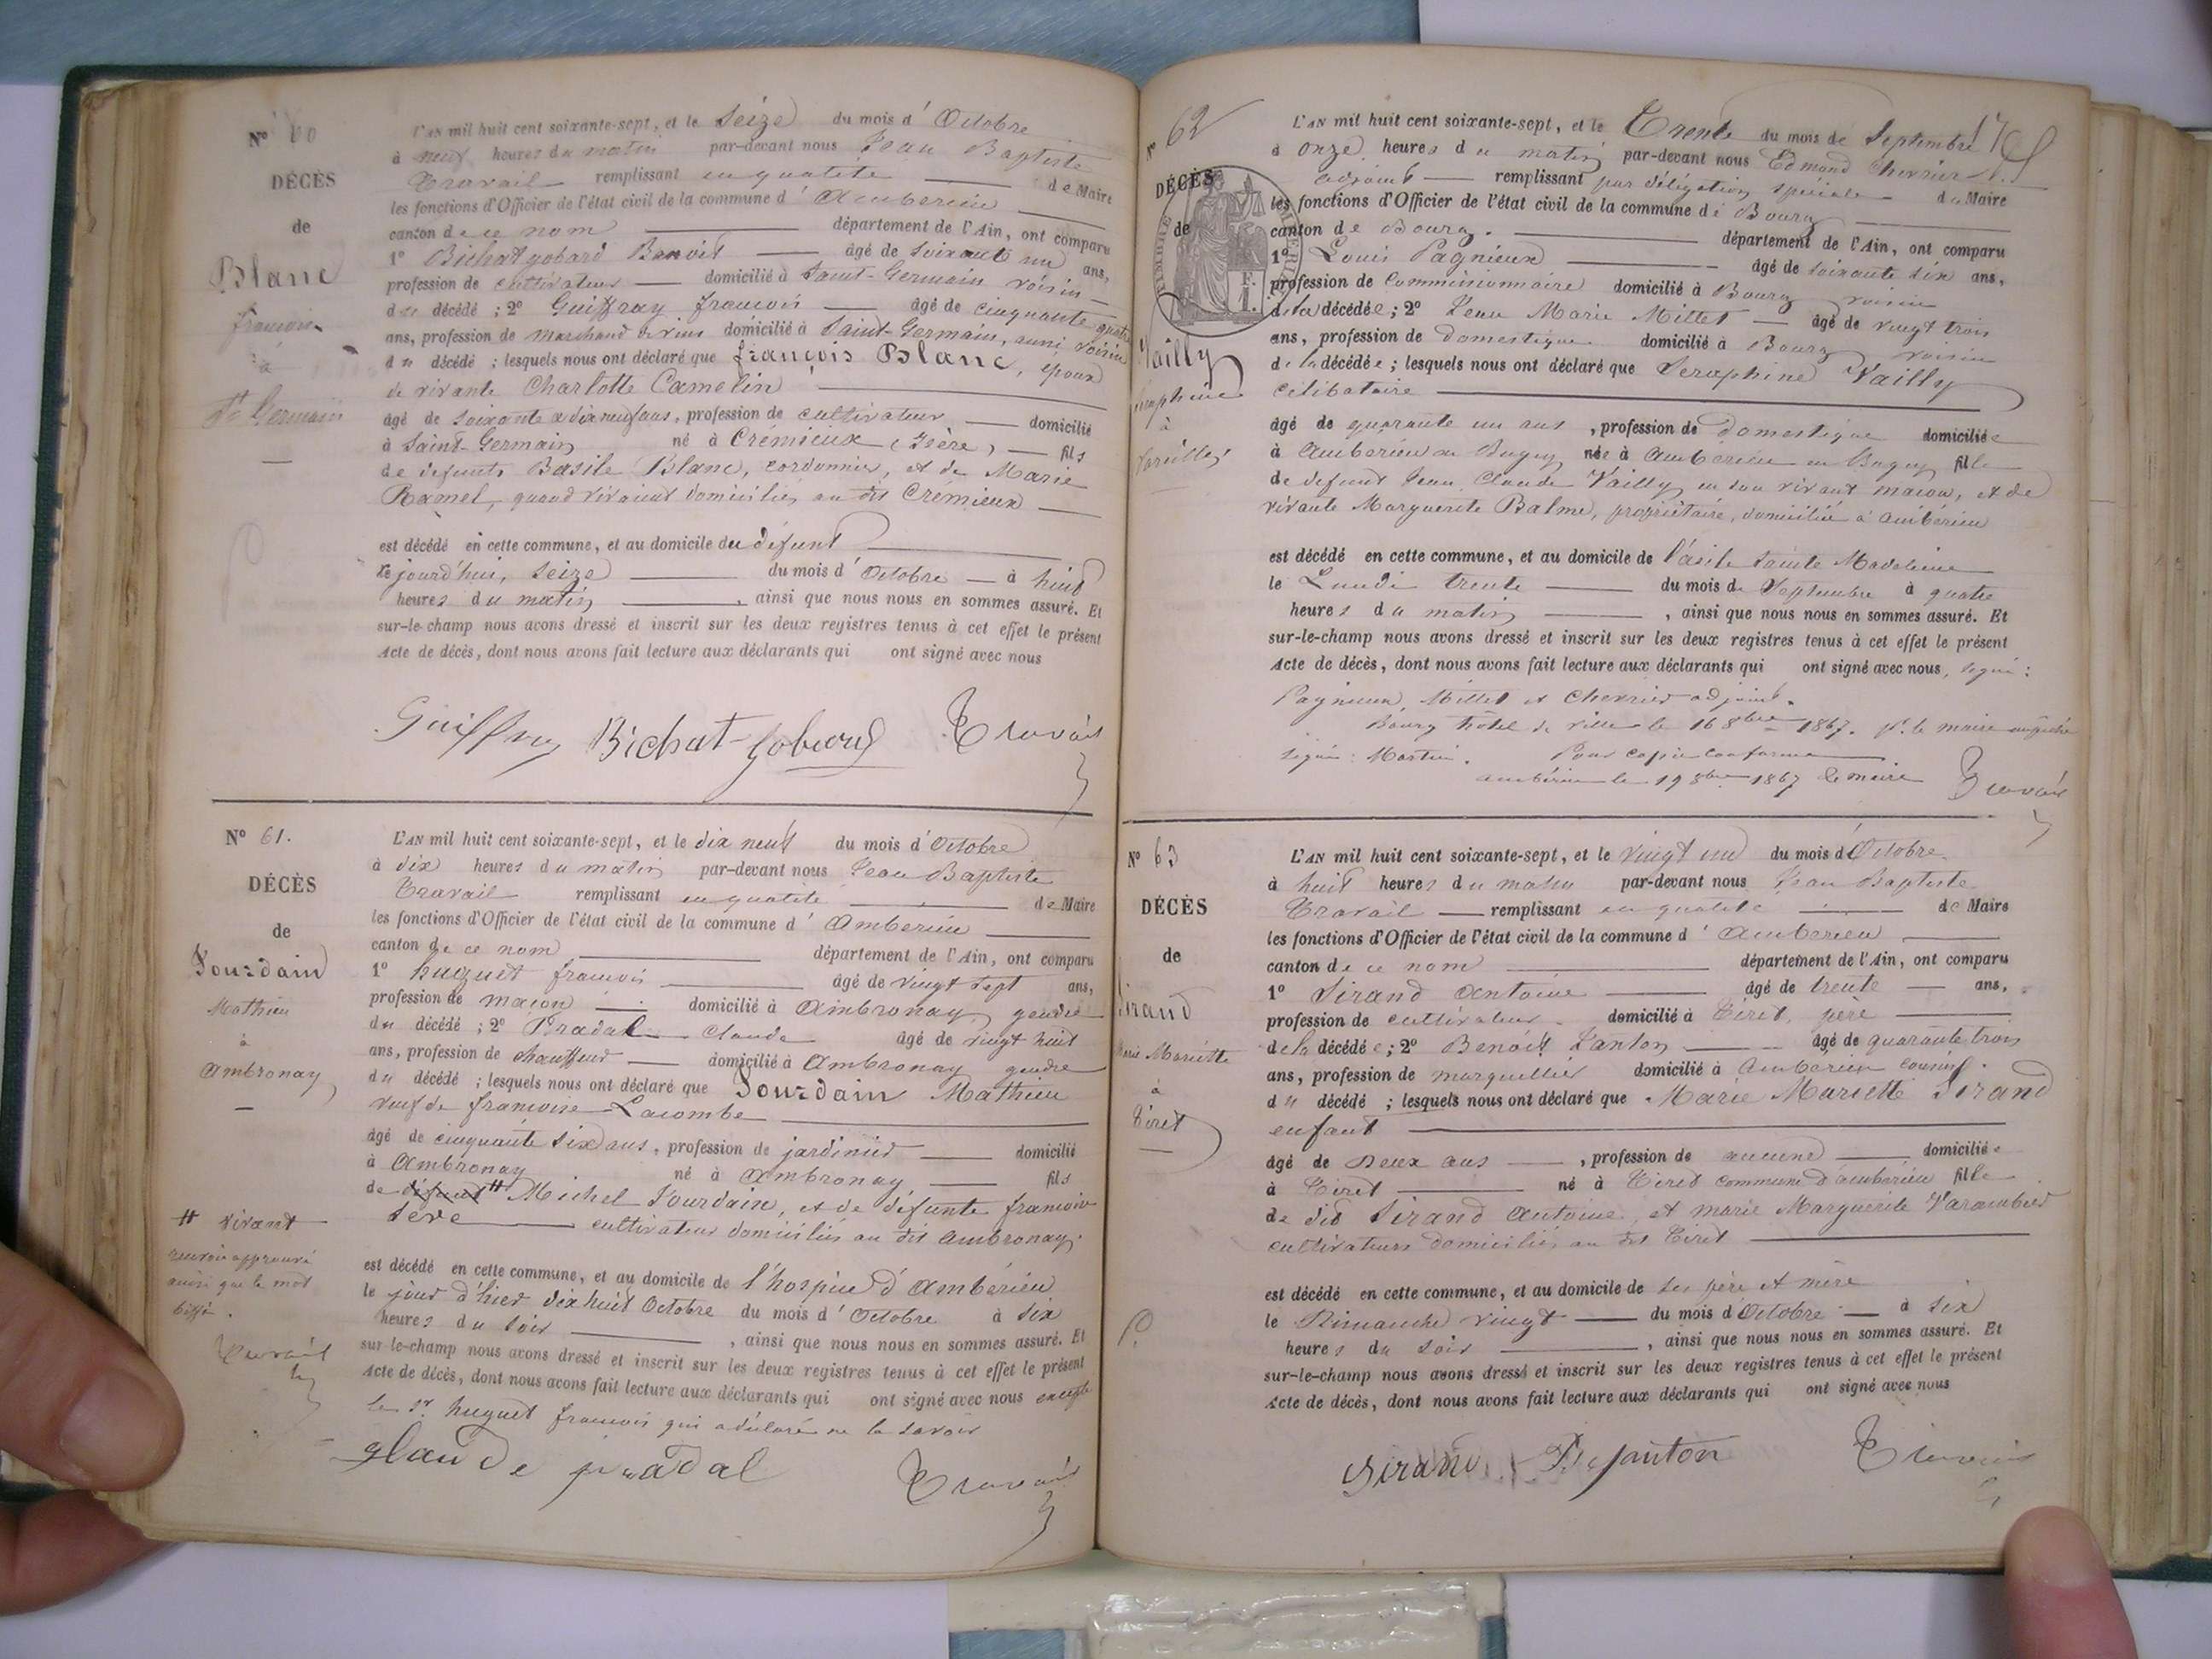 N° 60
DÉCÈS
de
Blanc
françois
à
St Germain
L'AN mil huit cent soixante-sept, et le Seize du mois d'Octobre
à neuf heures du matin par-devant nous Jean Baptiste
Travail remplissant en qualité de Maire
les fonctions d'Officier de l'état civil de la commune d'Ambérieu
canton de ce nom département de l'Ain, ont comparu
1° Bichat gobard Benoit âgé de soixante un ans,
profession de cultivateur domicilié à Saint-Germain voisin
du décédé ; 2° Guiffray françois âgé de cinquante quatre
ans, profession de marchand de vins domicilié à Saint-Germain, aussi voisin
du décédé ; lesquels nous ont déclaré que françois Blanc, époux
de vivante Charlotte Camelin
âgé de soixante dix neuf ans, profession de cultivateur domicilié
à Saint-Germain né à Crémieux (Isère) fils
de défunts Basile Blanc, cordonnier, et de Marie
Ramel, quand vivaient domiciliés au dit Crémieux
est décédé en cette commune, et au domicile du défunt
ce jourd'hui, seize du mois d'Octobre à huit
heures du matin, ainsi que nous nous en sommes assuré. Et
sur-le-champ nous avons dressé et inscrit sur les deux registres tenus à cet effet le présent
Acte de décès, dont nous avons fait lecture aux déclarants qui ont signé avec nous
Guiffray Bichat-gobard Travail
N° 61.
DÉCÈS
de
Jourdain
Mathieu
à
Ambronay
L'AN mil huit cent soixante-sept, et le dix neuf du mois d'Octobre
à dix heures du matin par-devant nous Jean Baptiste
Travail remplissant en qualité de Maire
les fonctions d'Officier de l'état civil de la commune d'Ambérieu
canton de ce nom département de l'Ain, ont comparu
1° huguet françois âgé de vingt sept ans,
profession de maçon domicilié à Ambronay, gendre
du décédé ; 2° Pradal Claude âgé de vingt huit
ans, profession de chauffeur domicilié à Ambronay gendre
du décédé ; lesquels nous ont déclaré que Jourdain Mathieu
veuf de françoise Lacombe
âgé de cinquante six ans, profession de jardinier domicilié
à Ambronay né à Ambronay, fils
de défunt # Michel Jourdain, et de défunte françoise
Seve cultivateurs domiciliés au dit Ambronay.
est décédé en cette commune, et au domicile de l'hospice d'Ambérieu
le jour d'hier dix huit Octobre du mois d'Octobre à six
heures du soir, ainsi que nous nous en sommes assuré. Et
sur-le-champ nous avons dressé et inscrit sur les deux registres tenus à cet effet le présent
Acte de décès, dont nous avons fait lecture aux déclarants qui ont signé avec nous excepté
le sr huguet françois qui a déclaré ne le savoir
# vivant
renvoi approuvé
ainsi que le mot
biffé.
Travail
glaude pradal Travail
N° 62
DÉCÈS
de
Vailly
Séraphine
à
L'AN mil huit cent soixante-sept, et le Trente du mois de Septembre
à onze heures du matin par-devant nous Edmond Chevrier
adjoint remplissant par délégation spéciale du Maire
les fonctions d'Officier de l'état civil de la commune de Bourg
canton de Bourg. département de l'Ain, ont comparu
1° Louis Pagnieux âgé de soixante six ans,
profession de Commissionnaire domicilié à Bourg voisin
de la décédée ; 2° Jean Marie Millet âgé de vingt trois
ans, profession de domestique domicilié à Bourg voisin
de la décédée ; lesquels nous ont déclaré que Seraphine Vailly
célibataire
âgé de quarante un ans, profession de domestique domiciliée
à Ambérieu en Bugey née à Ambérieu en Bugey fille
de défunt Jean Claude Vailly en son vivant maçon, et de
vivante Marguerite Balme, propriétaire, domiciliée à Ambérieu
est décédé en cette commune, et au domicile de l'asile Sainte Madeleine
le Lundi trente du mois de Septembre à quatre
heures du matin, ainsi que nous nous en sommes assuré. Et
sur-le-champ nous avons dressé et inscrit sur les deux registres tenus à cet effet le présent
Acte de décès, dont nous avons fait lecture aux déclarants qui ont signé avec nous, signé :
Pagnieux, Millet et Chevrier adjoint.
Bourg hôtel de ville le 16 8bre 1867. pr le maire empêché
signé : Martin. Pour copie conforme
Ambérieu le 19 8bre 1867 le maire Travail
N° 63
DÉCÈS
de
Sirand
Marie Mariette
à
Tiret
L'AN mil huit cent soixante-sept, et le vingt un du mois d'Octobre
à huit heures du matin par-devant nous Jean Baptiste
Travail remplissant en qualité de Maire
les fonctions d'Officier de l'état civil de la commune d'Ambérieu
canton de ce nom département de l'Ain, ont comparu
1° Sirand Antoine âgé de trente ans,
profession de cultivateur domicilié à Tiret, père
de la décédée ; 2° Benoît Janton âgé de quarante trois
ans, profession de marguillier domicilié à Ambérieu cousin
du décédé ; lesquels nous ont déclaré que Marie Mariette Sirand
enfant
âgé de Deux ans, profession de aucune domiciliée
à Tiret né à Tiret commune d'ambérieu fille
de dit Sirand Antoine, et marie Marguerite Varambier
cultivateurs domiciliés au dit Tiret
est décédé en cette commune, et au domicile de ses père et mère
le Dimanche vingt du mois d'Octobre à six
heures du soir, ainsi que nous nous en sommes assuré. Et
sur-le-champ nous avons dressé et inscrit sur les deux registres tenus à cet effet le présent
Acte de décès, dont nous avons fait lecture aux déclarants qui ont signé avec nous
Sirand Janton Travail